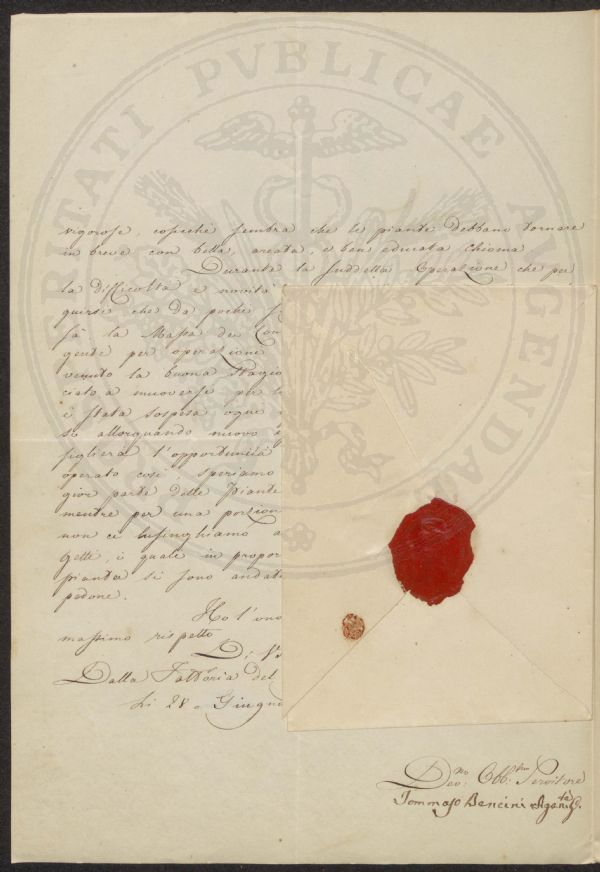 PROSPERITATI PVBLICAE AVGENDAE
vigorose, cosichè sembra che le piante debbano tornare
in breve con bella, areata, e ben educata chioma
Durante la suddetta Operazione che per
la difficoltà e novità
che da pochi
fà la Massa dei Con
gente per operazione
venuto la buona Stagio
ciato a muoversi per l
è stata sospesa ogne
so allorquando nuovo
siglierà l'opportunità
operato così, speriamo
gior parte delle Piante
mentre per una porzion
non ci lusinghiamo a
getti, i quale in propor
piante si sono andat
pedone.
Ho l'ono
massimo rispetto
Di VS
Dalla Fattoria del
Li 28 Giugno
Dev:mo Obb:mo Servitore
Tommaso Bencini Agente